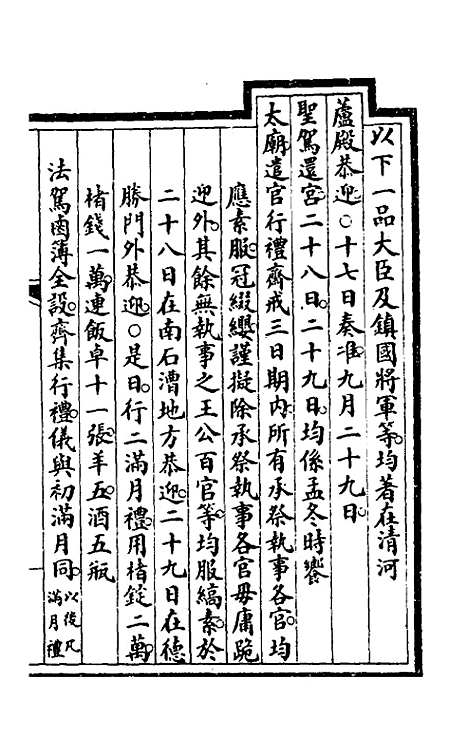 以下一品大臣及鎮國將軍等均著在清河
蘆殿恭迎○十七日奏准九月二十九日
聖駕還宮二十八日二十九日均係孟冬時饗
太廟遣官行禮齋戒三日期內所有承祭執事各官均
應素服冠綴纓謹擬除承祭執事各官毋庸跪
迎外其餘無執事之王公百官等均服縞素於
二十八日在南石漕地方恭迎二十九日在德
勝門外恭迎○是日行二滿月禮用楮錠二萬
楮錢一萬連飯卓十一張羊五酒五瓶
法駕鹵簿全設齊集行禮儀與初滿月同以後凡
滿月禮